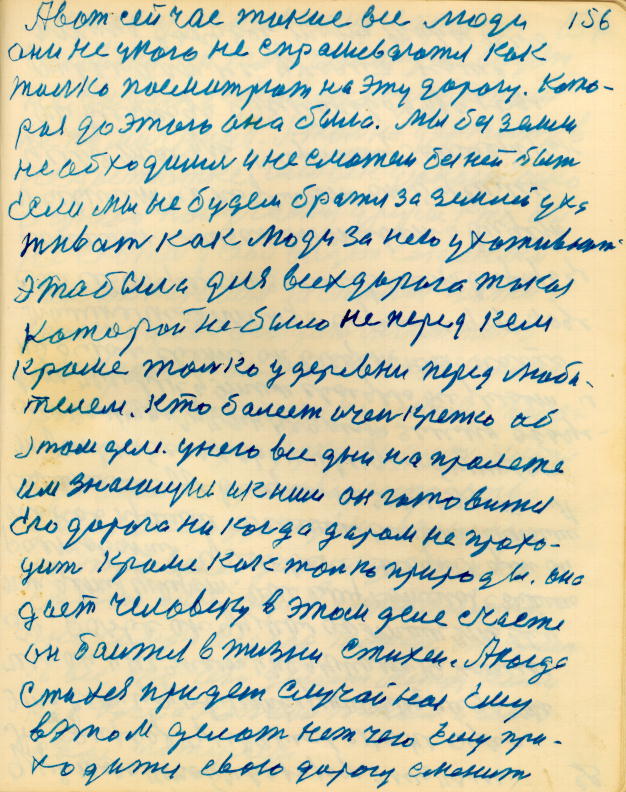 А вот сейчас такие все люди 156
они не у кого не спрашеваютя как
толко посмотрят на эту дорогу. Кото-
рая до этого она была. Мы без земли
необходимы и не сможем без ней быт
Если мы не будем братя за землей уха
живат как люди за нею ухаживают
Эта была для всех дорога такая
которой не было не перед кем
кроме толко у деревни перед люби-
телем. Кто балеет очен крепко об
этом деле. у него все дни на пролете
им знающие и к ним он готовитя
Его дорога никогда даром не прохо-
дит кроме как толко природы. она
дает человеку в этом деле счасте
он боитя в жизни стихеи. А когда
стихея придет случайная Ему
в этом делат нет чего Ему при-
ходитя свою дорогу сменит